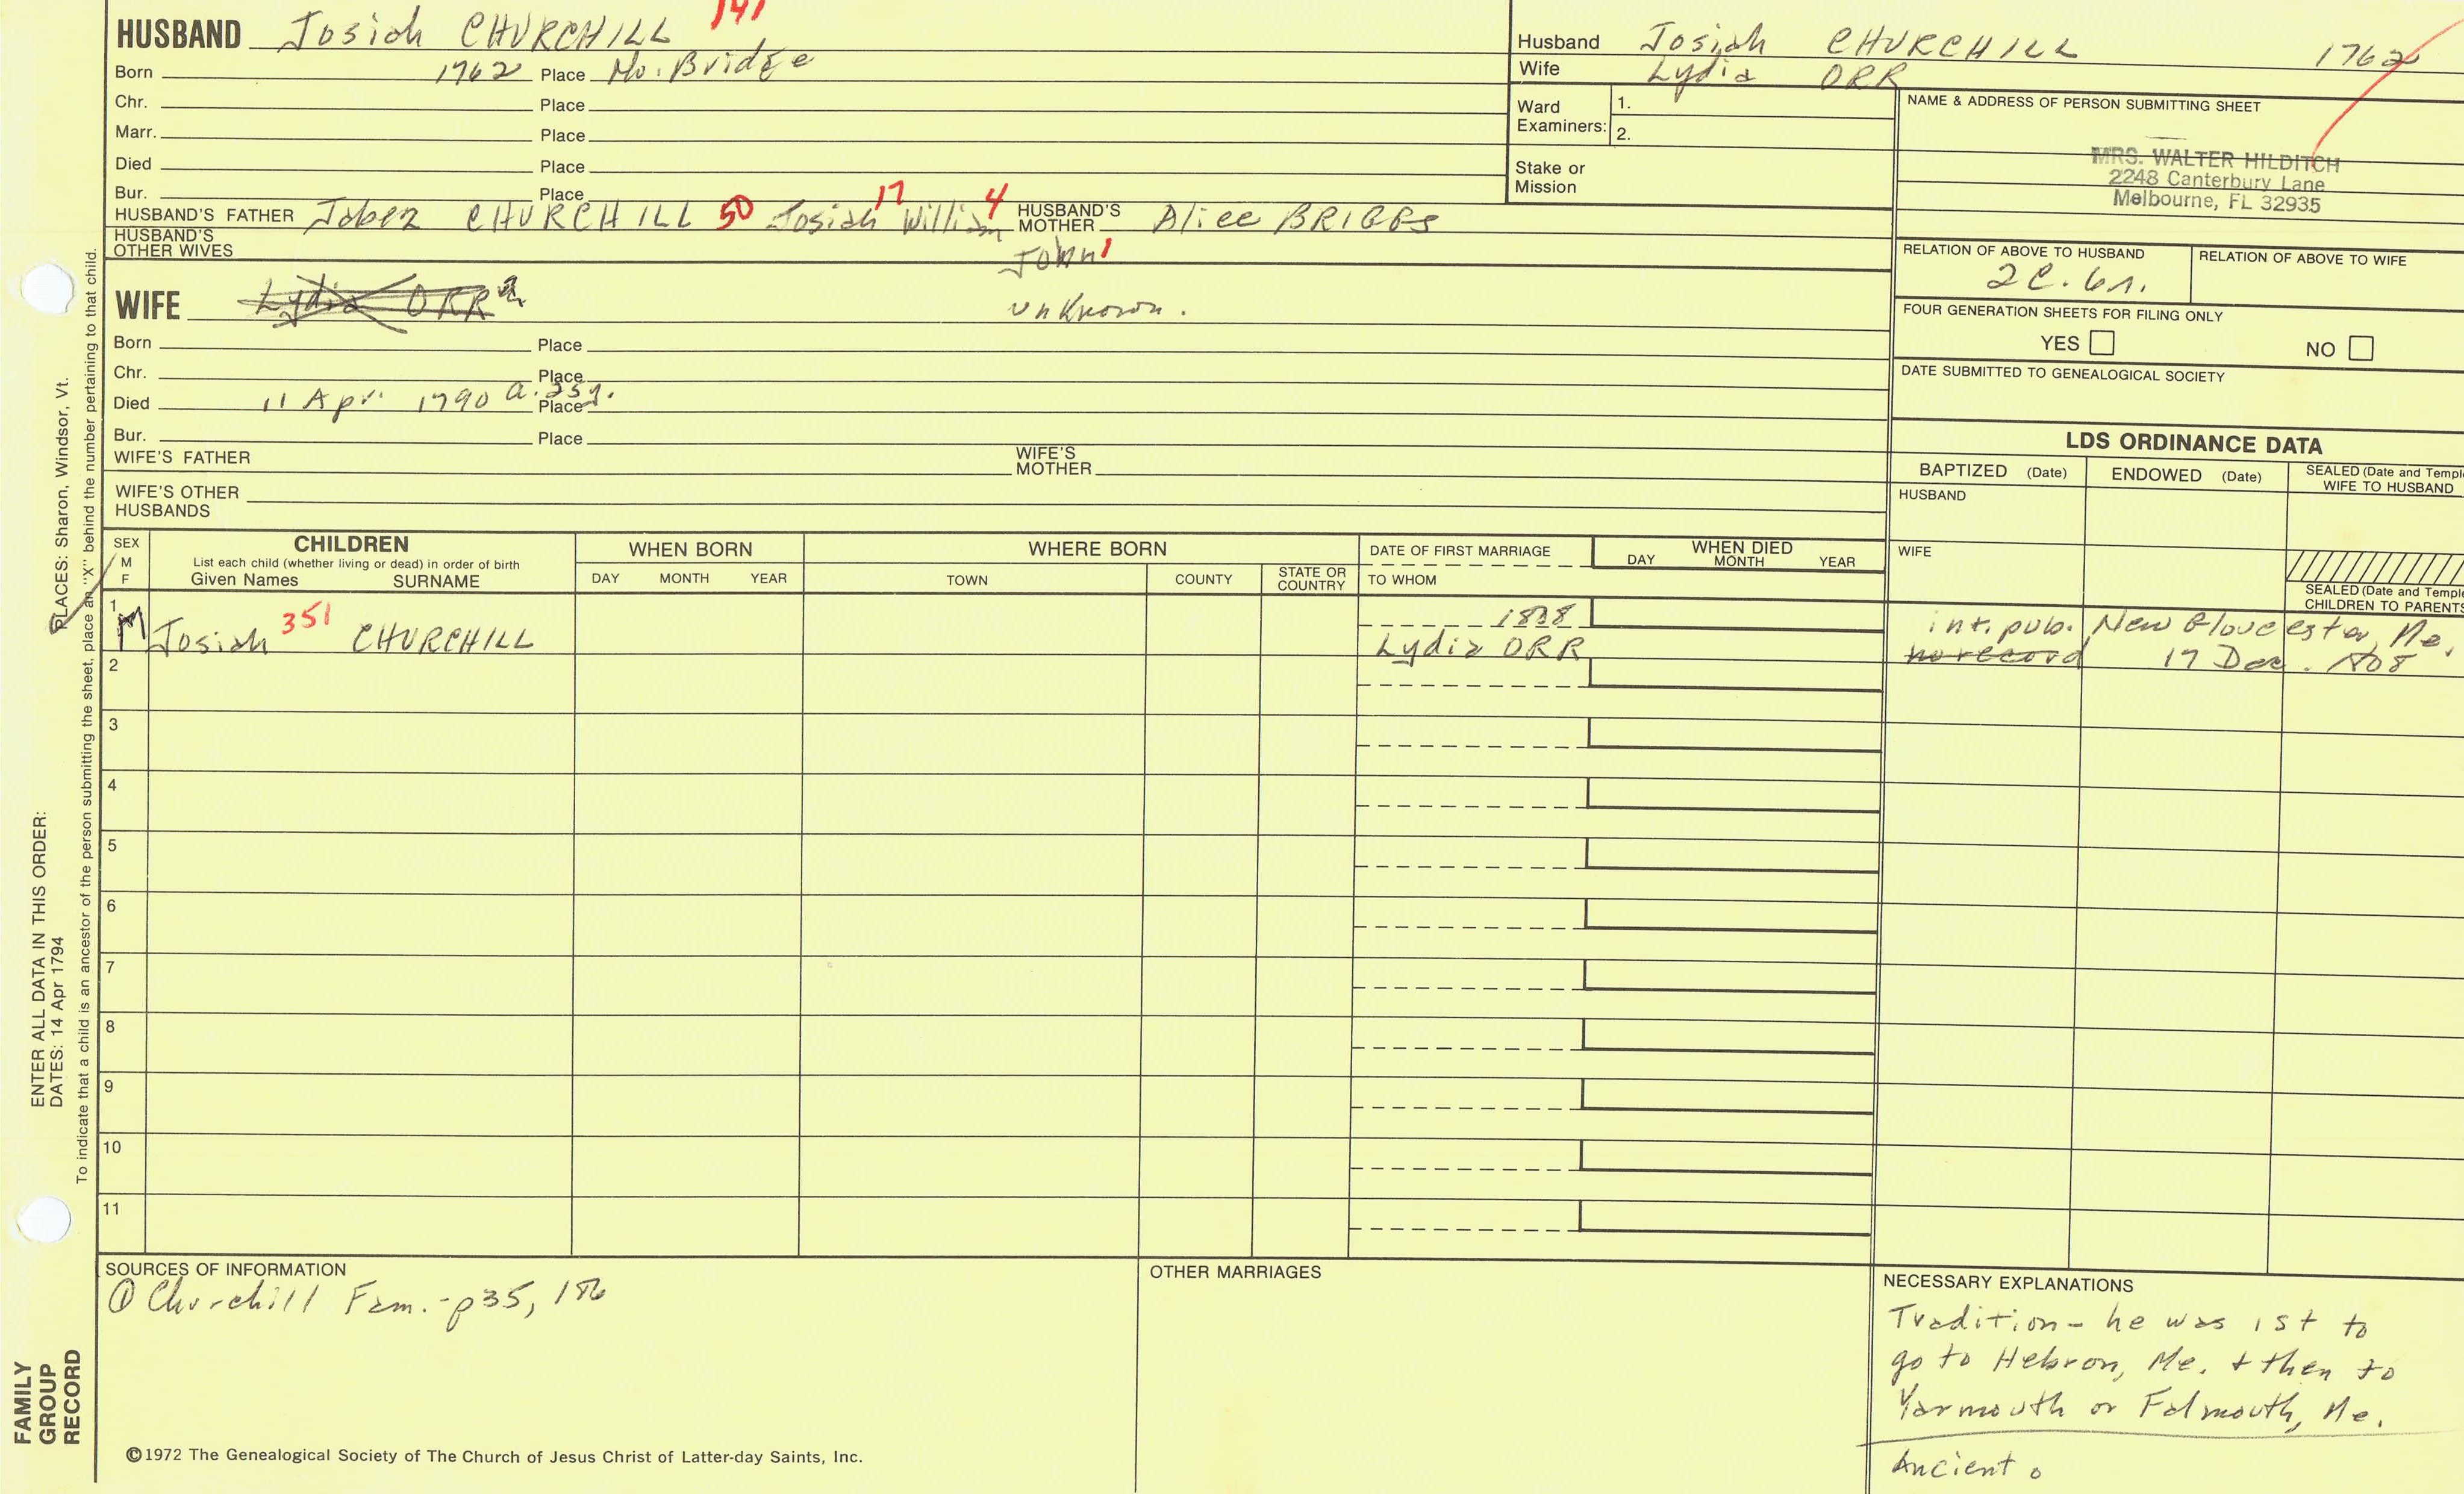 HUSBAND Josiah CHURCHILL 141
Born 1762 Place No. Bridge
Chr. Place
Marr. Place
Died Place
Bur. Place
HUSBAND'S FATHER Jabez CHURCHILL 50 Josiah 17 William 4 HUSBAND'S MOTHER Alice BRIGGS
John 1
HUSBAND'S OTHER WIVES
WIFE Lydia ORR
unknown.
Born Place
Chr. Place
Died 11 Apr. 1790 a. 25y. Place
Bur. Place
WIFE'S FATHER WIFE'S MOTHER
WIFE'S OTHER HUSBANDS
Husband Josiah CHURCHILL 1762
Wife Lydia ORR
Ward Examiners: 1.
2.
Stake or Mission
NAME & ADDRESS OF PERSON SUBMITTING SHEET
MRS. WALTER HILDITCH
2248 Canterbury Lane
Melbourne, FL 32935
RELATION OF ABOVE TO HUSBAND RELATION OF ABOVE TO WIFE
2C. 6r.
FOUR GENERATION SHEETS FOR FILING ONLY
YES NO
DATE SUBMITTED TO GENEALOGICAL SOCIETY
LDS ORDINANCE DATA
BAPTIZED (Date) ENDOWED (Date) SEALED (Date and Temple
WIFE TO HUSBAND
HUSBAND
WIFE
SEALED (Date and Temple
CHILDREN TO PARENTS
SEX M F
CHILDREN
List each child (whether living or dead) in order of birth
Given Names SURNAME
WHEN BORN
DAY MONTH YEAR
WHERE BORN
TOWN COUNTY STATE OR COUNTRY
DATE OF FIRST MARRIAGE
TO WHOM
WHEN DIED
DAY MONTH YEAR
1 M Josiah 351 CHURCHILL
Lydia ORR
int. pub. New Gloucester, Me.
no record 17 Dec.
2
3
4
5
6
7
8
9
10
11
SOURCES OF INFORMATION
① Churchill Fam. - p35,
OTHER MARRIAGES
NECESSARY EXPLANATIONS
Tradition - he was 1st to
go to Hebron, Me. + then to
Yarmouth or Falmouth, Me.
Ancient
©1972 The Genealogical Society of The Church of Jesus Christ of Latter-day Saints, Inc.
FAMILY
GROUP
RECORD
ENTER ALL DATA IN THIS ORDER:
DATES: 14 Apr 1794
PLACES: Sharon, Windsor, Vt.
To indicate that a child is an ancestor of the person submitting the sheet, place an "X" behind the number pertaining to that child.